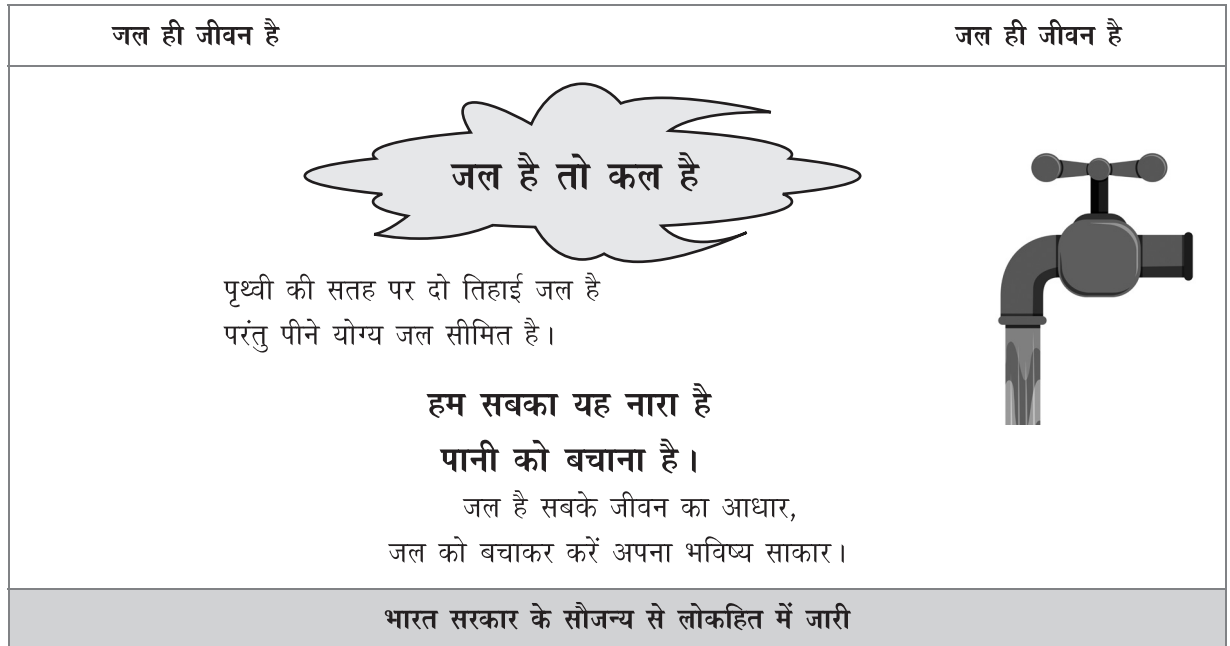 जल ही जीवन है
जल ही जीवन है
जल है तो कल है
पृथ्वी की सतह पर दो तिहाई जल है
परंतु पीने योग्य जल सीमित है।
हम सबका यह नारा है
पानी को बचाना है।
जल है सबके जीवन का आधार,
जल को बचाकर करें अपना भविष्य साकार।
भारत सरकार के सौजन्य से लोकहित में जारी